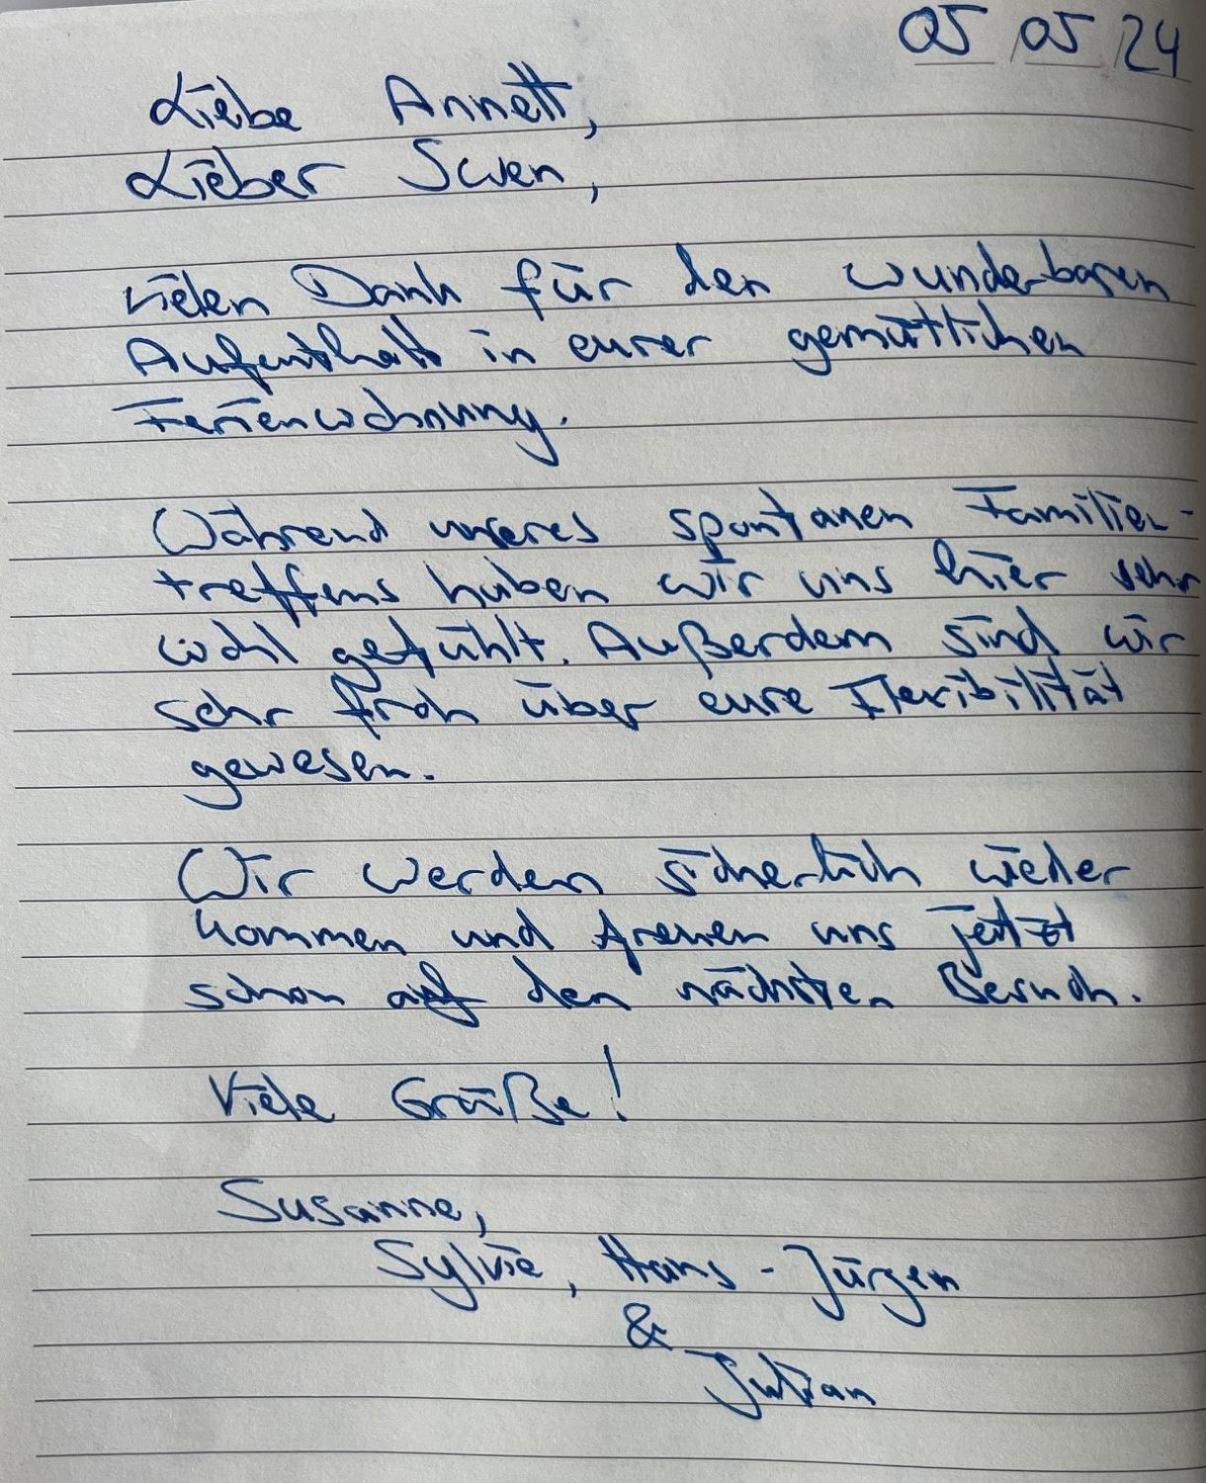 05/05/24
Liebe Annett,
Lieber Swen,
vielen Dank für den wunderbaren
Aufenthalt in eurer gemütlichen
Ferienwohnung.
Während unseres spontanen Familien-
treffens haben wir uns hier sehr
wohl gefühlt. Außerdem sind wir
sehr froh über eure Flexibilität
gewesen.
Wir werden sicherlich wieder
kommen und freuen uns jetzt
schon auf den nächsten Besuch.
Viele Grüße!
Susanne,
Sylvie, Hans-Jürgen
&
Julian